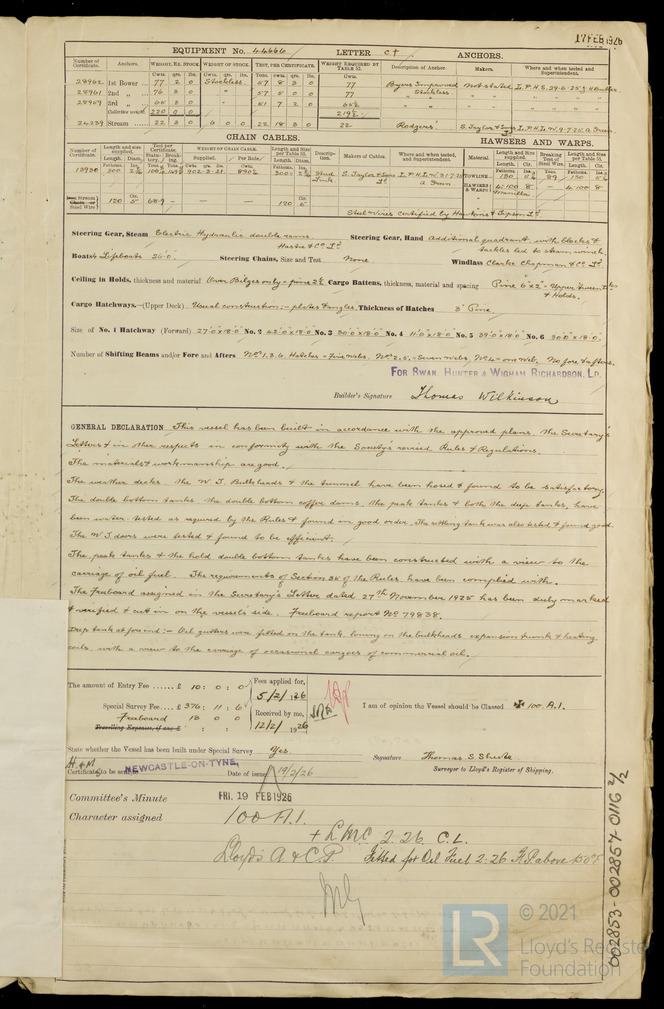 17 FEB 1926
EQUIPMENT No. 44666 LETTER c † ANCHORS.
Number of Certificate. Anchors. WEIGHT, EX. STOCK. WEIGHT OF STOCK. TEST, PER CERTIFICATE. WEIGHT REQUIRED BY TABLE 52. Description of Anchor. Makers. Where and when tested and Superintendent.
Cwts. qrs. lbs. Cwts. qrs. lbs. Tons. cwts. qrs. lbs. Cwts.
28962 1st Bower 77 2 0 Stockless. 57 8 3 0 77 Byers Improved Not stated
28961 2nd „ 76 3 0 " 57 5 0 0 77 Stockless.
28959 3rd „ 65 3 0 " 51 7 2 0 65½
Collective weight 220 0 0 219½
24239 Stream 22 3 0 6 0 0 22 18 3 0 22 Rodgers'
CHAIN CABLES. HAWSERS AND WARPS.
Number of Certificate. Length and size supplied. Test per Certificate. WEIGHT OF CHAIN CABLE. Length and Size per Table 53. Description. Makers of Cables. Where and when tested, and Superintendent. Material. Length and Size supplied. Breaking Test of Steel Wire. Length and Size per Table 53.
Supplied. Per Rule.
300 902-3-21 890½ 300 Stud Link S. Taylor & Sons Ld
TOWLINE 130 89 130
HAWSERS & WARPS 4-100 8 Manilla 4-100 8
120 5 68.9 120 5
Steel wires certified by Hawkins & Tipson Ld
Steering Gear, Steam Electric Hydraulic double rams Hastie & Co Ld Steering Gear, Hand Additional quadrant with blocks & tackles led to steam winch.
Boats 4 Lifeboats 26.0 Steering Chains, Size and Test None. Windlass Clarke Chapman & Co Ld
Ceiling in Holds, thickness and material Over Bilges only - pine 2½ Cargo Battens, thickness, material and spacing Pine 6" x 2" - Upper Tween Dks & Holds.
Cargo Hatchways.—(Upper Deck) Usual construction;- plates & angles. Thickness of Hatches 3" Pine.
Size of No. 1 Hatchway (Forward) 27.0 x 18.0 No. 2 42.0 x 18.0 No. 3 30.0 x 18.0 No. 4 11.0 x 18.0 No. 5 39.0 x 18.0 No. 6 30.0 x 18.0.
Number of Shifting Beams and/or Fore and Afters Nos 1.3.6. Hatches - Five webs. Nos 2.5. - Seven webs. No 4 - one web. No fore & afters.
FOR SWAN, HUNTER & WIGHAM RICHARDSON, LD.
Builder's Signature Thomas Wilkinson
GENERAL DECLARATION This vessel has been built in accordance with the approved plans the Secretary's
Letters & in other respects in conformity with the Society's revised Rules & Regulations.
The materials & workmanship are good.
The weather decks. the W. T. Bulkheads & the tunnel have been hosed & found to be satisfactory.
The double bottom tanks. the double bottom coffer dams. the peak tanks & both the deep tanks, have
been water tested as required by the Rules & found in good order. The settling tank was also tested & found good.
The W. T. doors were tested & found to be efficient.
The peak tanks & the hold double bottom tanks have been constructed with a view to the
carriage of oil fuel. The requirements of Section 35 of the Rules have been complied with.
The Freeboard assigned in the Secretary's Letter dated 27th November 1925 has been duly marked
& verified & cut in on the vessel's side. Freeboard report No 79838.
Deep tank at fore end :- Oil gutters were fitted on the tank, boring on the bulkheads expansion trunk & heating
coils with a view to the carriage of occasional cargoes of commercial oil.
The amount of Entry Fee £ 10 : 0 : 0 Fees applied for, 5/2/1926
Special Survey Fee £ 376 : 11 : 6 Received by me, 12/2/1926
Freeboard 18 0 0
Travelling Expenses, if any £ : :
I am of opinion the Vessel should be Classed ✠ 100. A.1.
State whether the Vessel has been built under Special Survey Yes.
Signature Thomas S. Shute
Surveyor to Lloyd's Register of Shipping.
H & M
Certificate to be sent to NEWCASTLE-ON-TYNE. Date of issue 19/2/26
Committee's Minute FRI. 19 FEB 1926
Character assigned 100 A.1.
+ L.M.C. 2.26 C.L.
Lloyd's A & C.P. Fitted for Oil Fuel 2.26 F.P. above 150°F
002853-002857-0116 2/2
LR
© 2021
Lloyd's Register
Foundation